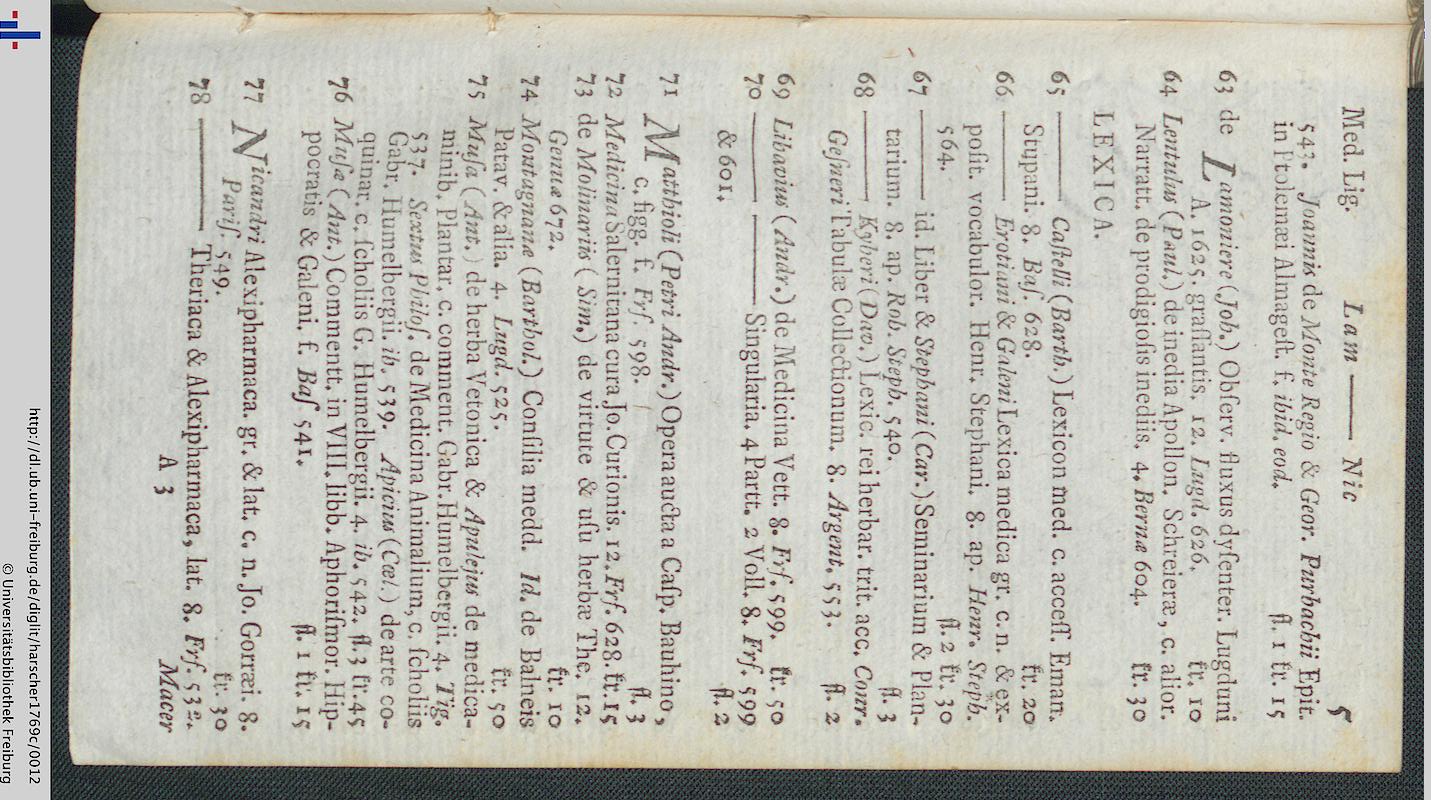 Med. Lig. Lam —— Nic 5
543. Joannis de Monte Regio & Geor. Purbachii Epit.
in Ptolemæi Almageſt. f. ibid. eod. fl. 1 kr. 15
63 de Lamoniere (Joh.) Obſerv. fluxus dyſenter. Lugduni
A. 1625. graſſantis. 12. Lugd. 626. kr. 10
64 Lentulus (Paul.) de inedia Apollon. Schreieræ, c. alior.
Narratt. de prodigioſis inediis. 4. Bernæ 604. kr. 30
LEXICA.
65 —— Caſtelli (Barth.) Lexicon med. c. acceſſ. Eman.
Stupani. 8. Baſ. 628. kr. 20
66 —— Erotiani & Galeni Lexica medica gr. c. n. & ex-
poſit. vocabulor. Henr. Stephani. 8. ap. Henr. Steph.
564. fl. 2 kr. 30
67 —— id. Liber & Stephani (Car.) Seminarium & Plan-
tarium. 8. ap. Rob. Steph. 540. fl. 3
68 —— Kyberi (Dav.) Lexic. rei herbar. trit. acc. Conr.
Geſneri Tabulæ Collectionum. 8. Argent. 553. fl. 2
69 Libavius (Andr.) de Medicina Vett. 8. Frf. 599. kr. 50
70 —— —— Singularia. 4 Partt. 2 Voll. 8. Frf. 599
& 601. fl. 2
71 Matthioli (Petri Andr.) Opera aucta a Caſp. Bauhino,
c. figg. f. Frf. 598. fl. 3
72 Medicina Salernitana cura Jo. Curionis. 12. Frf. 628. kr. 15
73 de Molinariis (Sim.) de virtute & uſu herbæ The. 12.
Genuæ 672. kr. 10
74 Montagnanæ (Barthol.) Conſilia medd. Id. de Balneis
Patav. & alia. 4. Lugd. 525. kr. 50
75 Muſa (Ant.) de herba Vetonica & Apulejus de medica-
minib. Plantar. c. comment. Gabr. Humelbergii. 4. Tig.
537. Sextus Philoſ. de Medicina Animalium, c. ſcholiis
Gabr. Humelbergii. ib. 539. Apicius (Cœl.) de arte co-
quinar. c. ſcholiis G. Humelbergii. 4. ib. 542. fl. 3 kr. 45
76 Muſæ (Ant.) Commentt. in VIII. libb. Aphoriſmor. Hip-
pocratis & Galeni. f. Baſ. 541. fl. 1 kr. 15
77 Nicandri Alexipharmaca. gr. & lat. c. n. Jo. Gorræi. 8.
Pariſ. 549. kr. 30
78 —— Theriaca & Alexipharmaca, lat. 8. Frf. 532.
A 3 Macer
http://dl.ub.uni-freiburg.de/diglit/harscher1769c/0012
© Universitätsbibliothek Freiburg